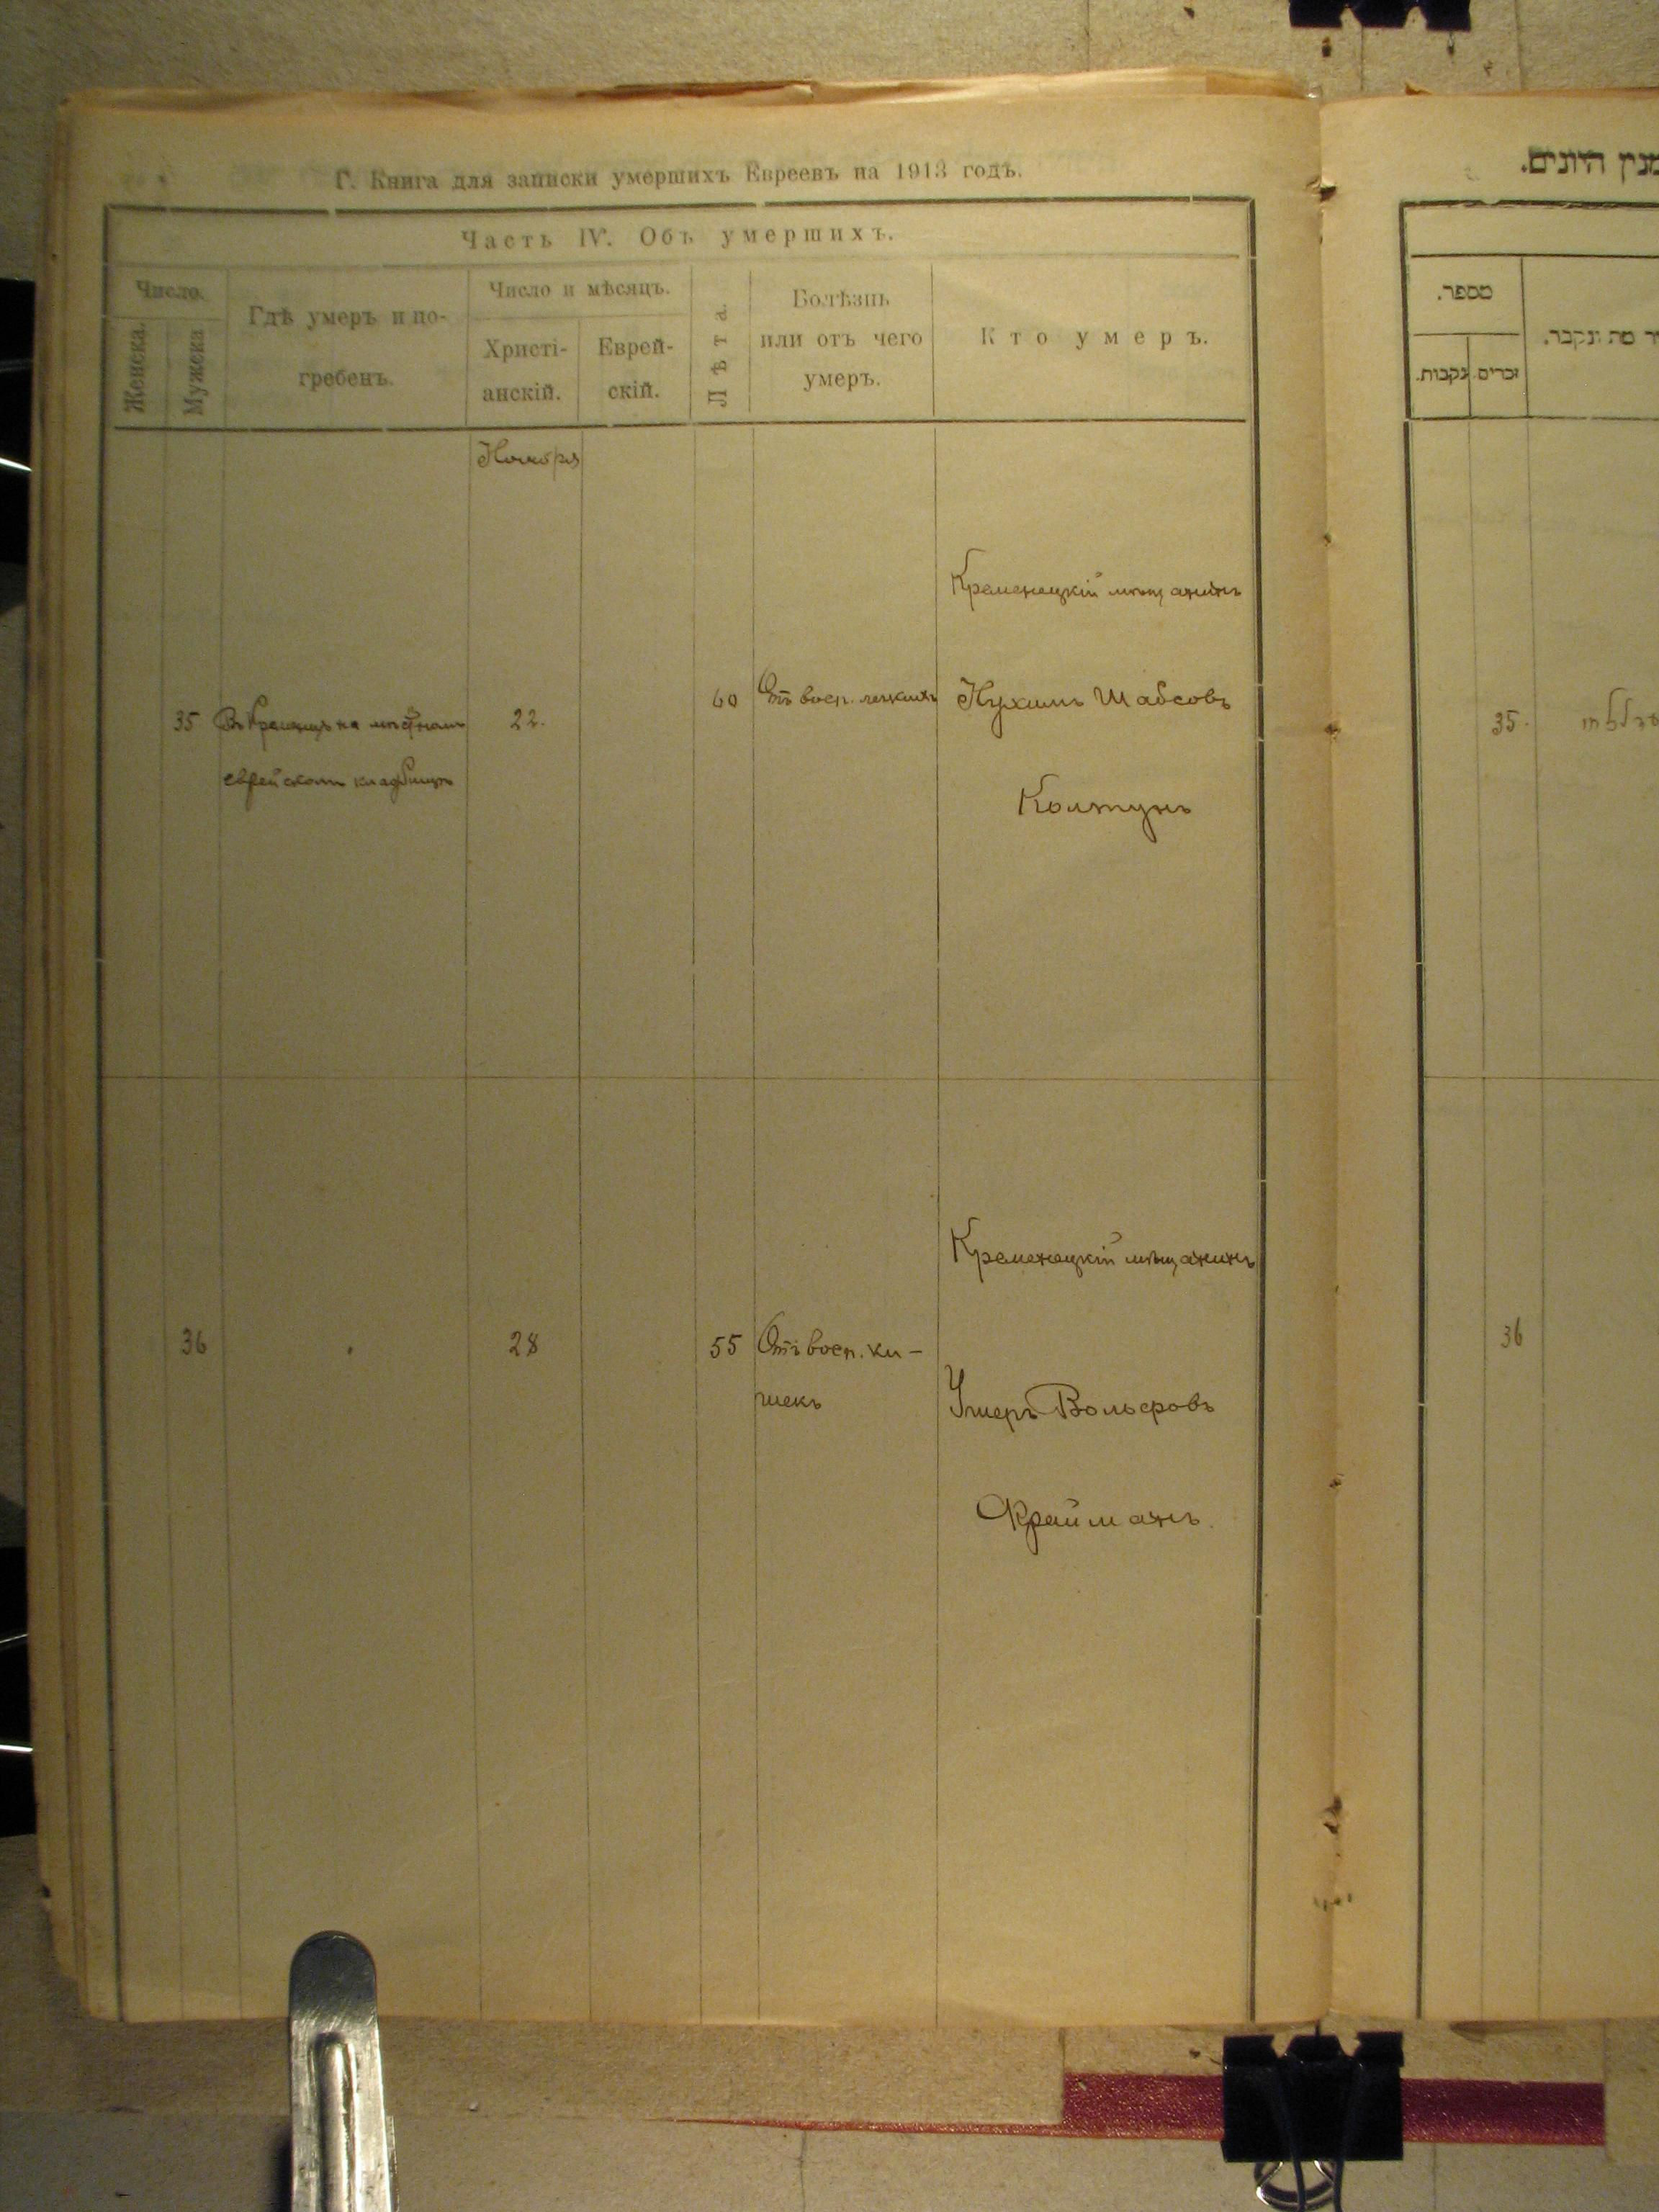 Г. Книга для записки умершихъ Евреевъ на 1913 годъ.
Часть IV. Объ умершихъ.
Число.
Женска.
Мужска
Гдѣ умеръ и по-
гребенъ.
Число и мѣсяцъ.
Христі-
анскій.
Еврей-
скій.
Лѣта.
Болѣзнь
или отъ чего
умеръ.
Кто умеръ.
Ноября
35
Въ Кременцѣ на мѣстномъ
еврейскомъ кладбищѣ
22.
60
Отъ восп. легкихъ
Кременецкій мѣщанинъ
Нухимъ Шабсовъ
Колтунъ
36
28
55
Отъ восп. ки-
шекъ
Кременецкій мѣщанинъ
Ушеръ Вольфовъ
Фрайманъ.
היונים.
מספר.
זכרים.
נקבות.
מת ונקבר.
35.
36